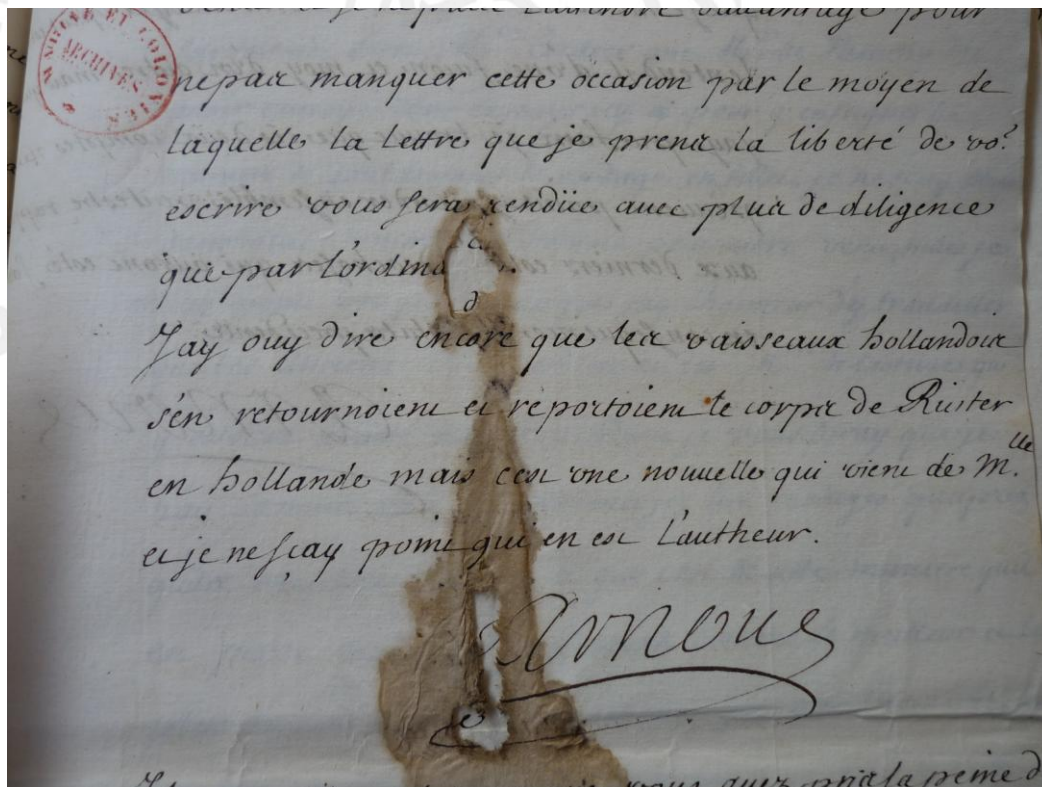 MARINE ET COLONIES
ARCHIVES
davantage pour
ne pas manquer cette occasion par le moyen de
laquelle la lettre que je prens la liberté de vo.ˢ
escrire vous sera rendüe avec plus de diligence
que par l'ordina
J'ay ouy dire encore que les vaisseaux hollandois
s'en retournoient et reportoient le corps de Ruiter
en hollande mais c'est une nouvelle qui vient de M.lle
et je ne sçay point qui en est l'autheur.
Arnoul
vous avez pris la peine d